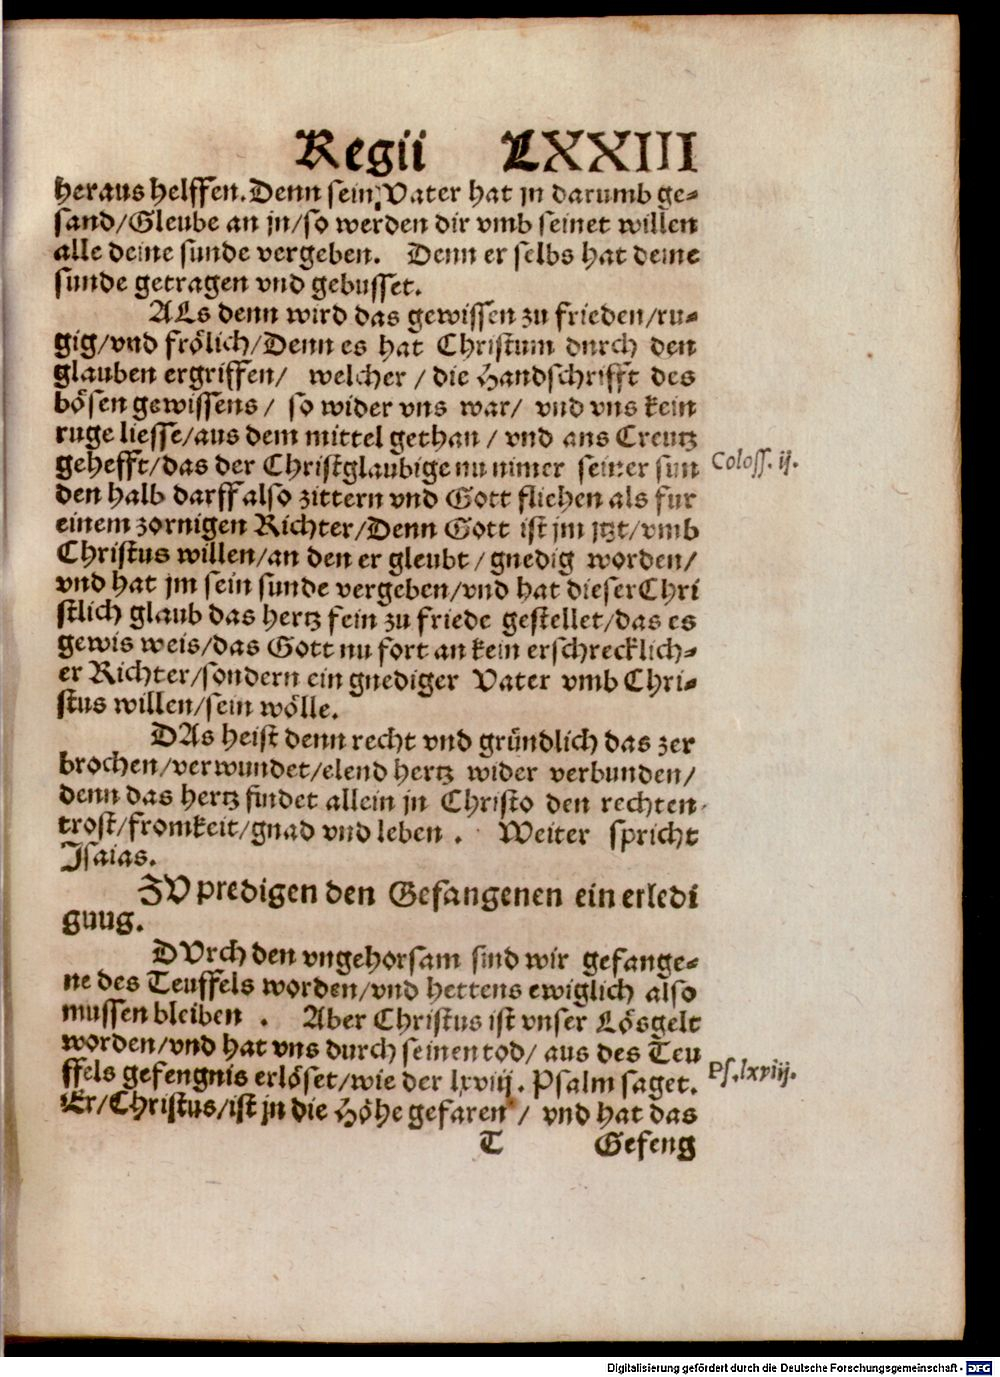 Regii LXXIII
heraus helffen. Denn sein Vater hat jn darumb ge-
sand/Gleube an jn/so werden dir vmb seinet willen
alle deine sunde vergeben. Denn er selbs hat deine
sunde getragen vnd gebusset.
ALs denn wird das gewissen zu frieden/ru-
gig/vnd frölich/Denn es hat Christum durch den
glauben ergriffen/ welcher / die Handschrifft des
bösen gewissens / so wider vns war/ vnd vns kein
ruge liesse/aus dem mittel gethan / vnd ans Creutz
gehefft/das der Christglaubige nu nimer seiner sun
Coloss. ij.
den halb darff also zittern vnd Gott fliehen als fur
einem zornigen Richter/Denn Gott ist jm jtzt/vmb
Christus willen/an den er gleubt / gnedig worden/
vnd hat jm sein sunde vergeben/vnd hat dieser Chri
stlich glaub das hertz fein zu friede gestellet/das es
gewis weis/das Gott nu fort an kein erschrecklich-
er Richter/sondern ein gnediger Vater vmb Chri-
stus willen/sein wölle.
DAs heist denn recht vnd gründlich das zer
brochen/verwundet/elend hertz wider verbunden/
denn das hertz findet allein jn Christo den rechten
trost/fromkeit/gnad vnd leben . Weiter spricht
Jsaias.
ZV predigen den Gefangenen ein erledi
guug.
DVrch den vngehorsam sind wir gefange-
ne des Teuffels worden/vnd hettens ewiglich also
mussen bleiben . Aber Christus ist vnser Lösgelt
worden/vnd hat vns durch seinen tod/ aus des Teu
ffels gefengnis erlöset/wie der lxviij. Psalm saget.
Ps. lxviij.
Er/Christus/ist jn die Höhe gefaren / vnd hat das
T Gefeng
Digitalisierung gefördert durch die Deutsche Forschungsgemeinschaft - DFG